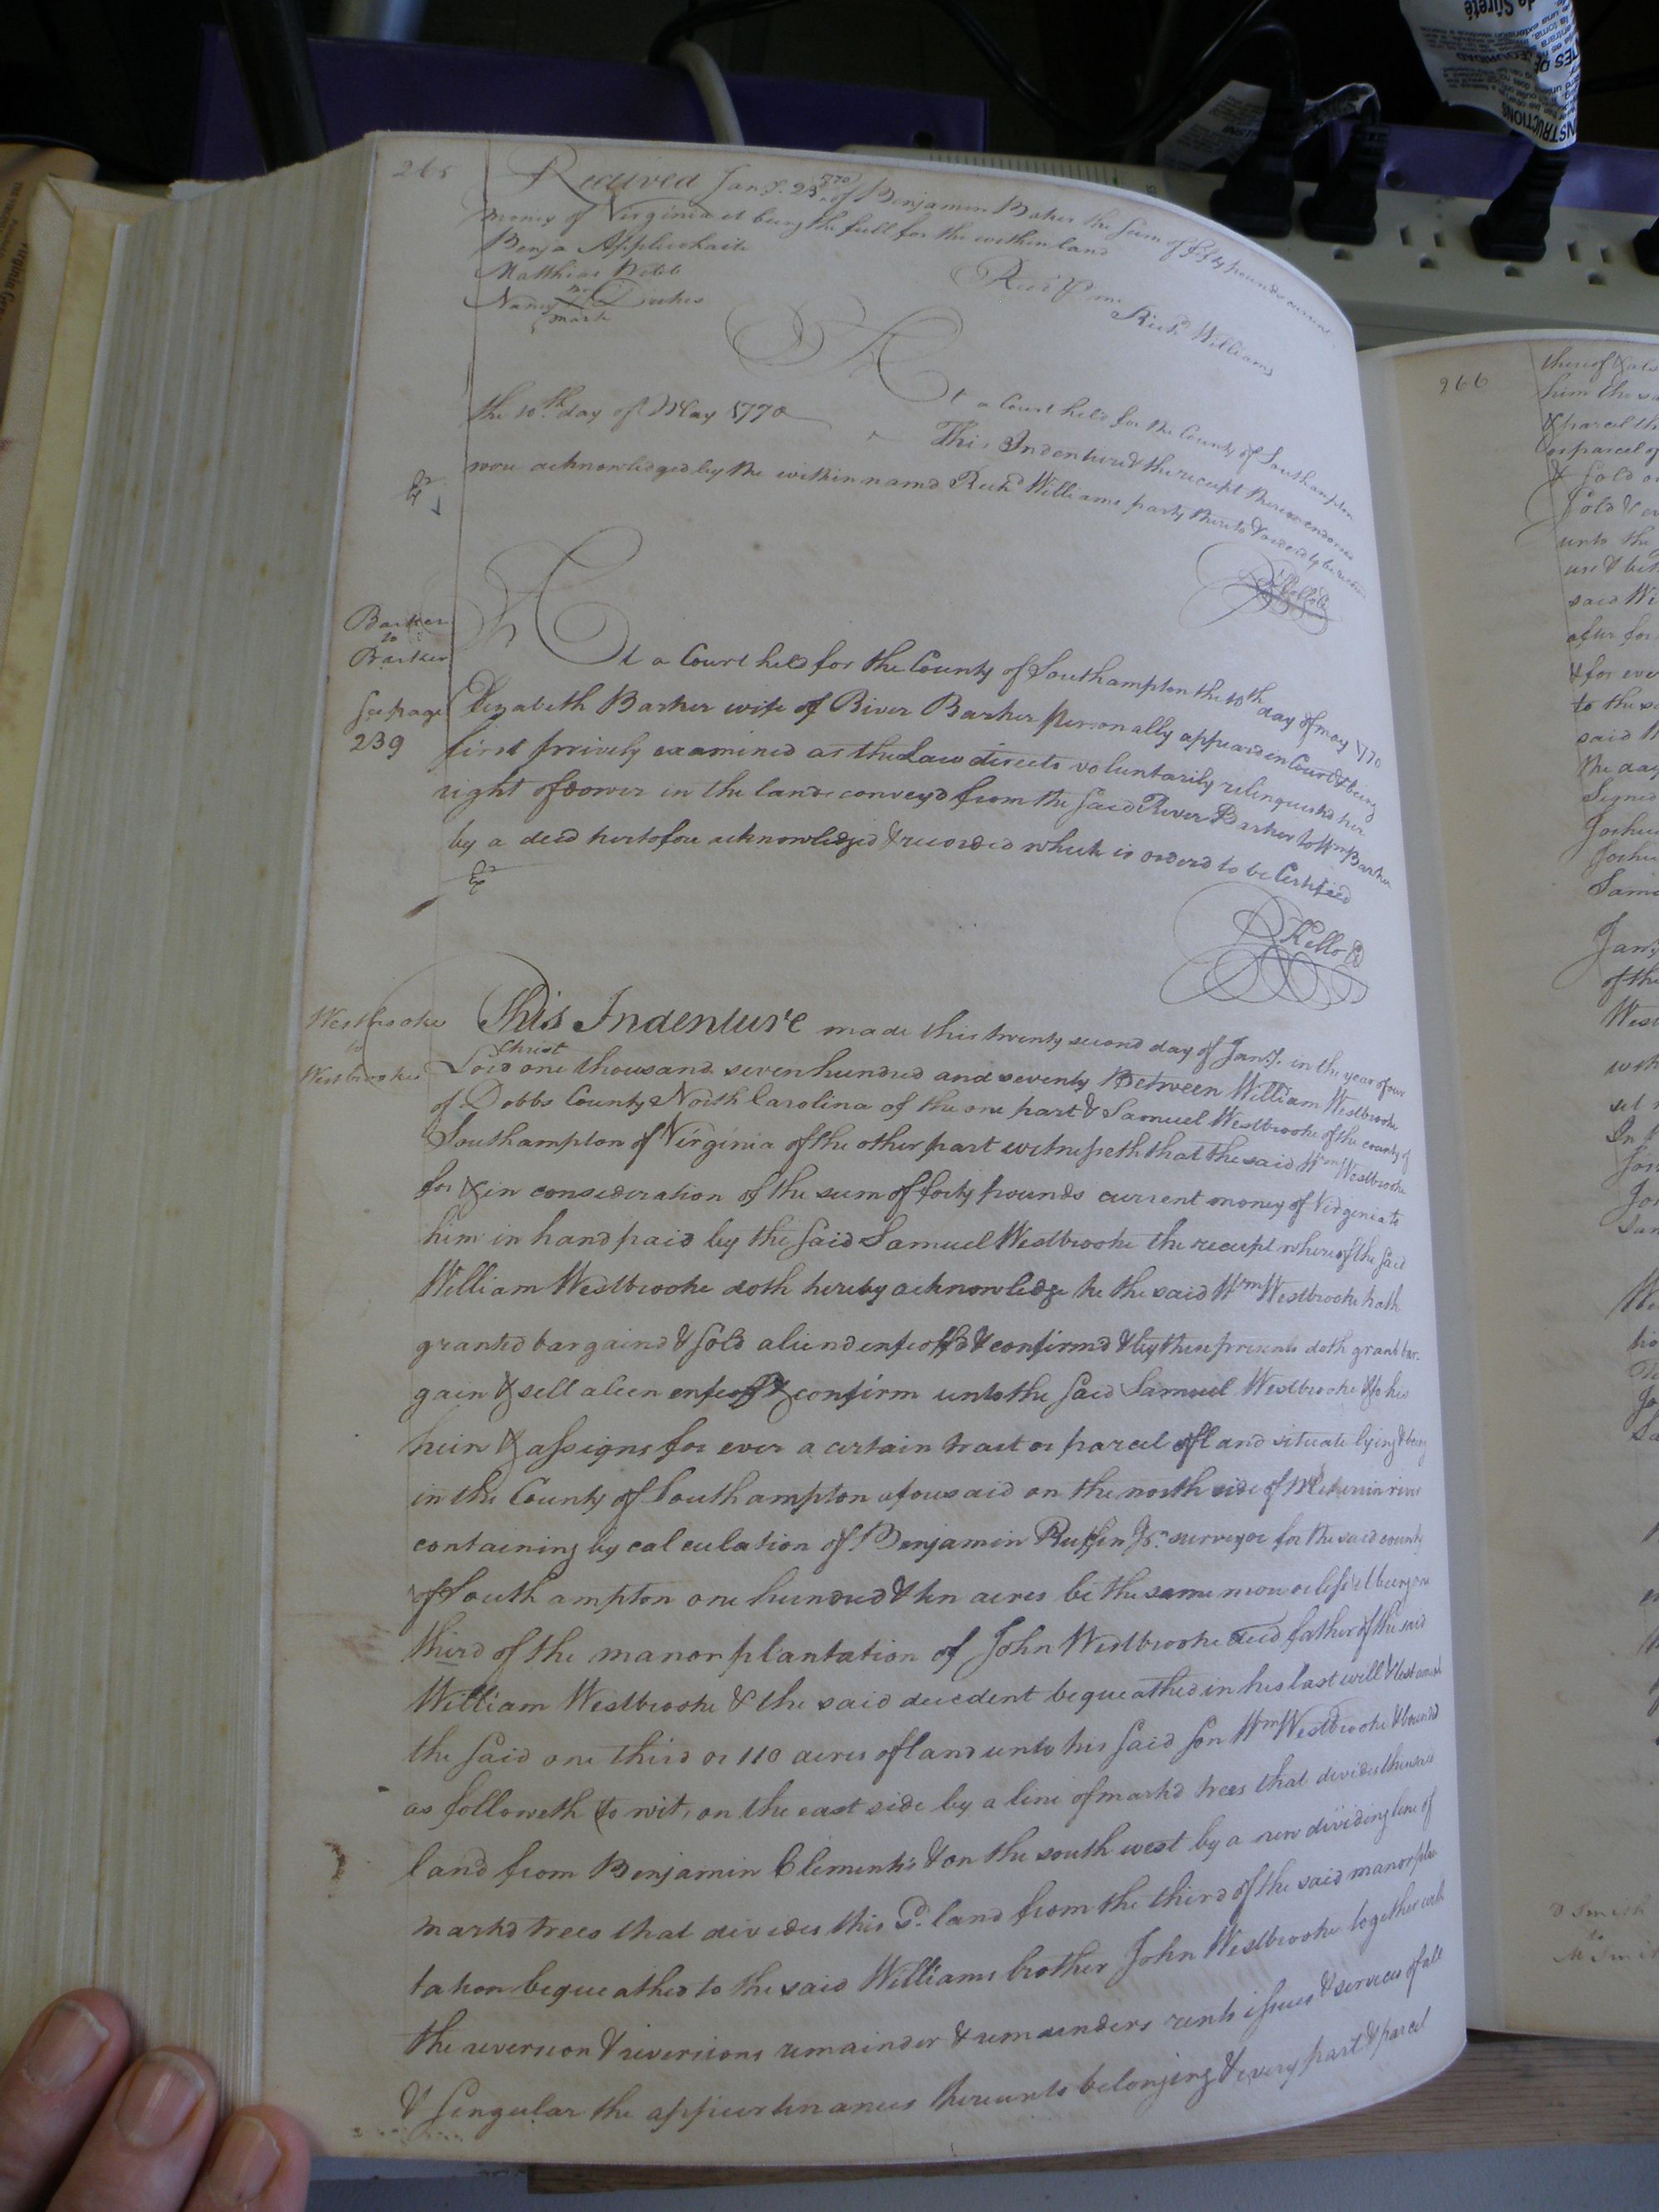 265
Received Jany. 23d 1770 of Benjamin Baker the sum of fifty pounds current
money of Virginia it being the full for the within land
Benja Applewhaite
Matthias Webb
Nancy
mark
Recd P me
Richd Williams
At a Court held for the County of Southampton
the 10th day of May 1770
This Indenture & the receipt thereon endorsed
were acknowledged by the within namd Richd Williams party thereto & ordered to be recorded
Barker
to
Barker
See page
239
At a Court held for the County of Southampton the 10th day of may 1770
Elizabeth Barker wife of River Barker personally appeard in Court & being
first privily examined as the Law directs voluntarily relinquishd her
right of dower in the lands conveyd from the said River Barker to Wm Barker
by a deed hertofore acknowledged & recorded which is orderd to be Certified
RKello
Westbrooke
to
Westbrooke
This Indenture made this twenty second day of Jany. in the year of our
Lord Christ one thousand seven hundred and seventy Between William Westbrooke
of Dobbs County North Carolina of the one part & Samuel Westbrooke of the county of
Southampton of Virginia of the other part witnesseth that the said Wm Westbrooke
for & in consideration of the sum of forty pounds current money of Virginia to
him in hand paid by the said Samuel Westbrooke the receipt whereof the said
William Westbrooke doth hereby acknowledge he the said Wm Westbrooke hath
granted bargaind & sold aliend enfeoffd & confirmd & by these presents doth grant bar-
gain & sell alien enfeoff & confirm unto the said Samuel Westbrooke & to his
heirs & assigns for ever a certain tract or parcel of land situate lying & being
in the County of Southampton aforesaid on the north side of Meherrin river
containing by calculation of Benjamin Ruffin Jr. surveyor for the said county
of Southampton one hundred & ten acres be the same more or less it being one
third of the manor plantation of John Westbrooke decd father of the said
William Westbrooke & the said decedent bequeathed in his last will & testament
the said one third or 110 acres of land unto his said son Wm Westbrooke & bounded
as followeth to wit, on the east side by a line of markd trees that divides the said
land from Benjamin Clements & on the south west by a new dividing line of
markd trees that divides this sd. land from the third of the said manor plan
tation bequeathed to the said Williams brother John Westbrooke together with
the reversion & reversions remainder & remainders rents issues & services of all
& singular the appurtenances thereunto belonging & every part & parcel
266
thereof
him the
& parcel
or parcel
sold
unto the
use &
said
after
& for ever
to the
said
the day
Signed
Joshua
Jany
of the
D Smith
to